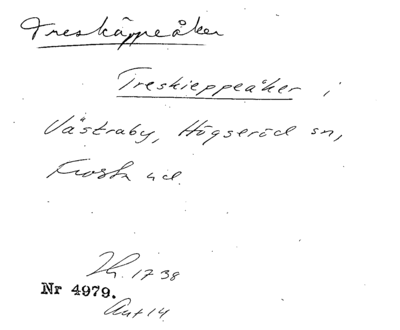 Treskäppeåker
Treskieppeåker i
Västraby, Högseröd sn,
Frosta hd.
Jh. 1738
Nr 4979.
Ant 14